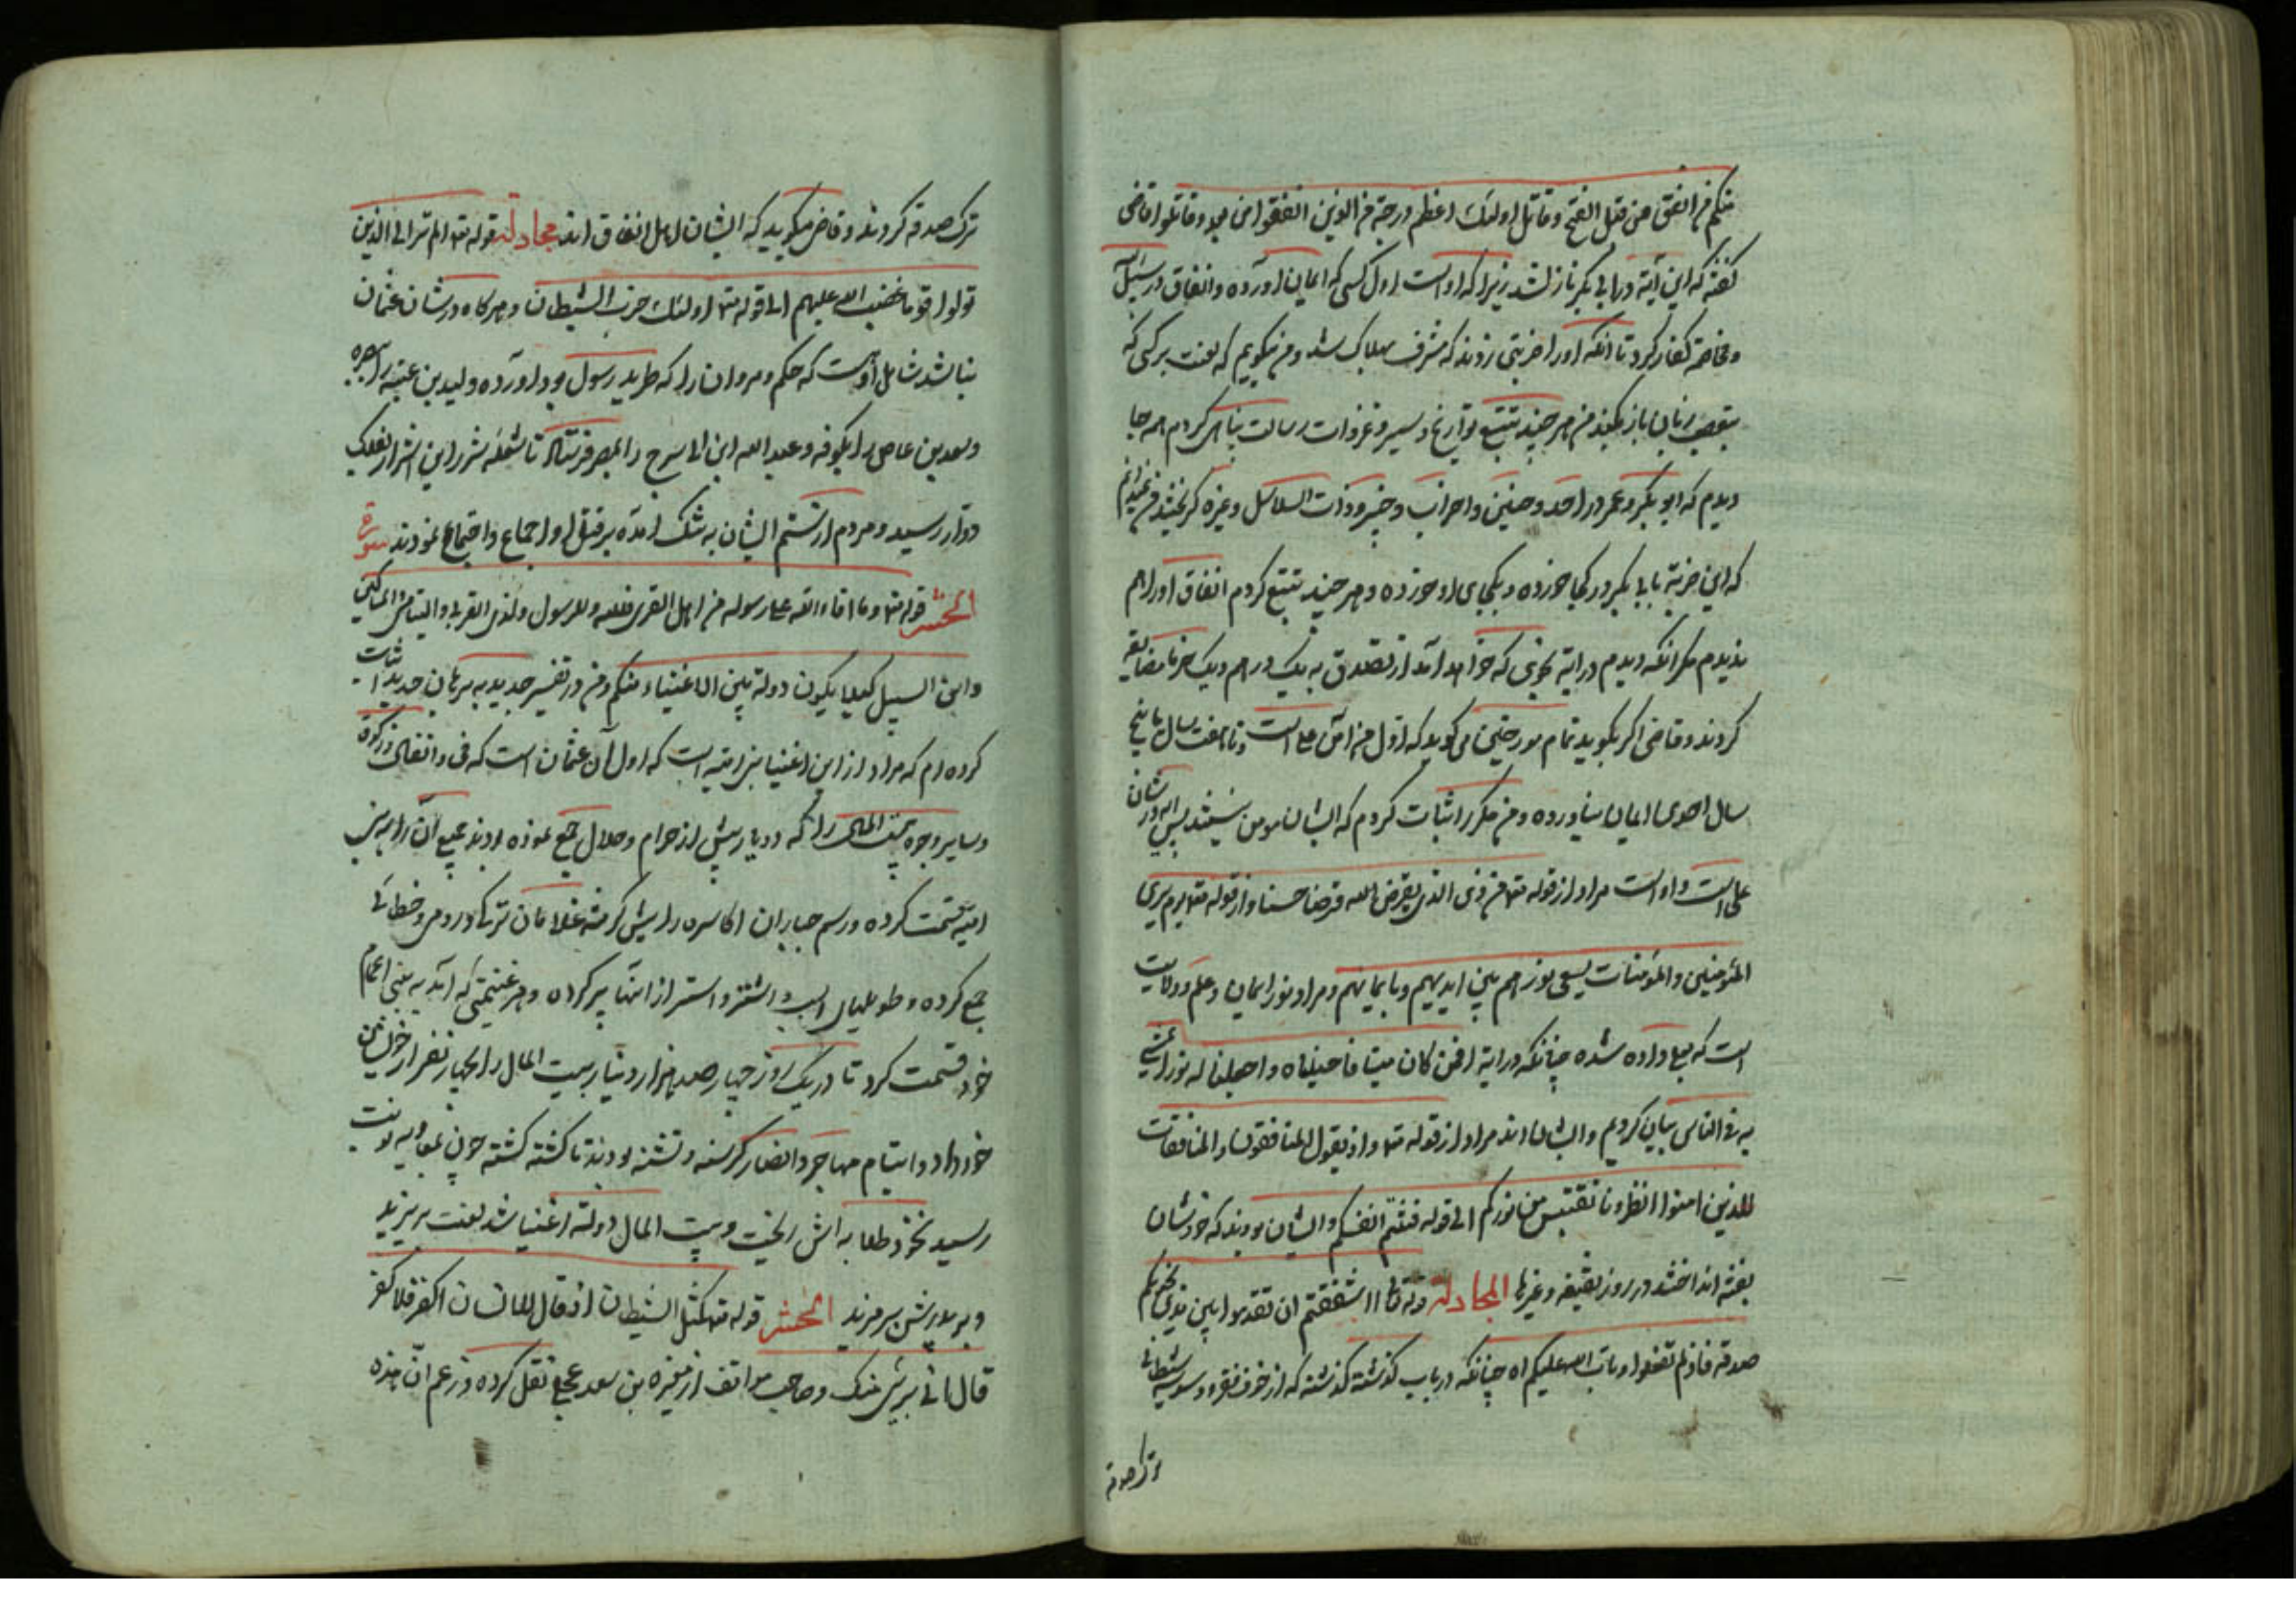 منکم من انفق من قبل الفتح و قاتل اولئک اعظم درجة من الذین انفقوا من بعد و قاتلوا قاضی
گفته که این آیة در ابی بکر نازلشد زیرا که او است اول کسی که ایمان آورده و انفاق در سبیل
و مخاصمه کفار کرد تا آنکه او را ضربتی زدند که مشرف بهلاک شد و من میگویم که لعنت بر کسی که
بتعصب زبان باز میکند من هر چند تتبع تواریخ و سیر و غزوات رسالت پناهی کردم همه جا
دیدم که ابو بکر و عمر در احد و حنین و احزاب و خیبر و ذات السلاسل و غیره گریختند من نمیدانم
که این ضربة بابی بکر در کجا خورده و بکجای او خورده و هر چند تتبع کردم انفاق او را هم
ندیدم مگر آنکه دیدم در آیة نجوی که خواهد آمد از تصدق به یک درهم و یک خرما مضایقه
کردند و قاضی اگر بگوید تمام مورخین می گوید که اول من آمن علی است و تا هفت سال یا پنج
سال احدی ایمان نیاورده و من مکرر اثبات کردم که ایشان مومن نیستند پس آیه در شان
علی است و او است مراد از قوله تع من ذی الذی یقرض الله قرضا حسنا و از قوله تع یوم یری
المؤمنین و المؤمنات یسعی نورهم بین ایدیهم و بایمانهم و مراد نور ایمان و علم و ولایت
است که بعلی داده شده چنانکه در آیة افمن کان میتا فاحییناه و اجعلنا له نورا یمشی
به فی الناس بیان کردیم و ایشان اند مراد از قوله تع و اذ یقول المنافقون و المنافقات
للذین امنوا انظرونا نقتبس من نورکم الی قوله فتنتم انفسکم و ایشان بودند که خودشان
بفتنه انداختند در روز سقیفه و غیرها المجادلة قوله تعالی ااشفقتم ان تقدموا بین یدی نجویکم
صدقة فاذ لم تفعلوا و تاب الله علیکم اه چنانکه در باب گذشته گذشته که از خوف فقر و وسوسه شیطانی
ترک صدقه
ترک صدقه کردند و قاضی میگوید که ایشان اهل انفاق اند مجادلة قوله تع الم تر الی الذین
تولوا قوما غضب الله علیهم الی قوله تع اولئک حزب الشیطان و هر گاه در شان عثمان
نباشد شامل او است که حکم و مروان را که طرید رسول بود آورده و لید بن عتبه را ببصره
و سعد بن عاص را بکوفه و عبد الله ابن ابی سرح را بمصر فرستاد تا شعله شرر این اشرار بفلک
دوار رسید و مردم از ستم ایشان به تنگ آمده بر قتل او اجماع و اجتماع نمودند سورة
الحشر قوله تع و ما افاء الله علی رسوله من اهل القری فلله و للرسول و لذی القربی و الیتامی و المساکین
و ابن السبیل کیلا یکون دولة بین الاغنیاء منکم و من در تفسیر جدید به برهان حدید اثبات
کرده ام که مراد از این اغنیا بنی امیه است که اول آن عثمان است که فی و انفال و زکوة
و سایر وجوه بیت المال را که دو یارش از حرام و حلال جمع نموده بودند جمیع آن را به بنی
امیه قسمت کرده و رسم جباران اکاسره را پیش گرفته غلامان ترک و رومی و خطائی
جمع کرده و طویلهای اسب و اشتر و استر از آنها پر کرده و هر غنیمتی که آمد به بنی اعمام
خود قسمت کرد تا در یک روز چهار صد هزار دینار بیت المال را بچهار نفر از خویشان
خود داد و ایتام مهاجر و انصار گرسنه و تشنه بودند تا کشته گشته چون بمعاویه نوبت
رسید بیت المال دولة اغنیا شد لعنت بر یزید
و بر پدرش بر مزید الحشر قوله تع کمثل الشیطان اذ قال للانسان اکفر فلما کفر
قال انی بری منک و صاحب مواقف از مغیره بن سعد عجلی نقل کرده و زعم آن